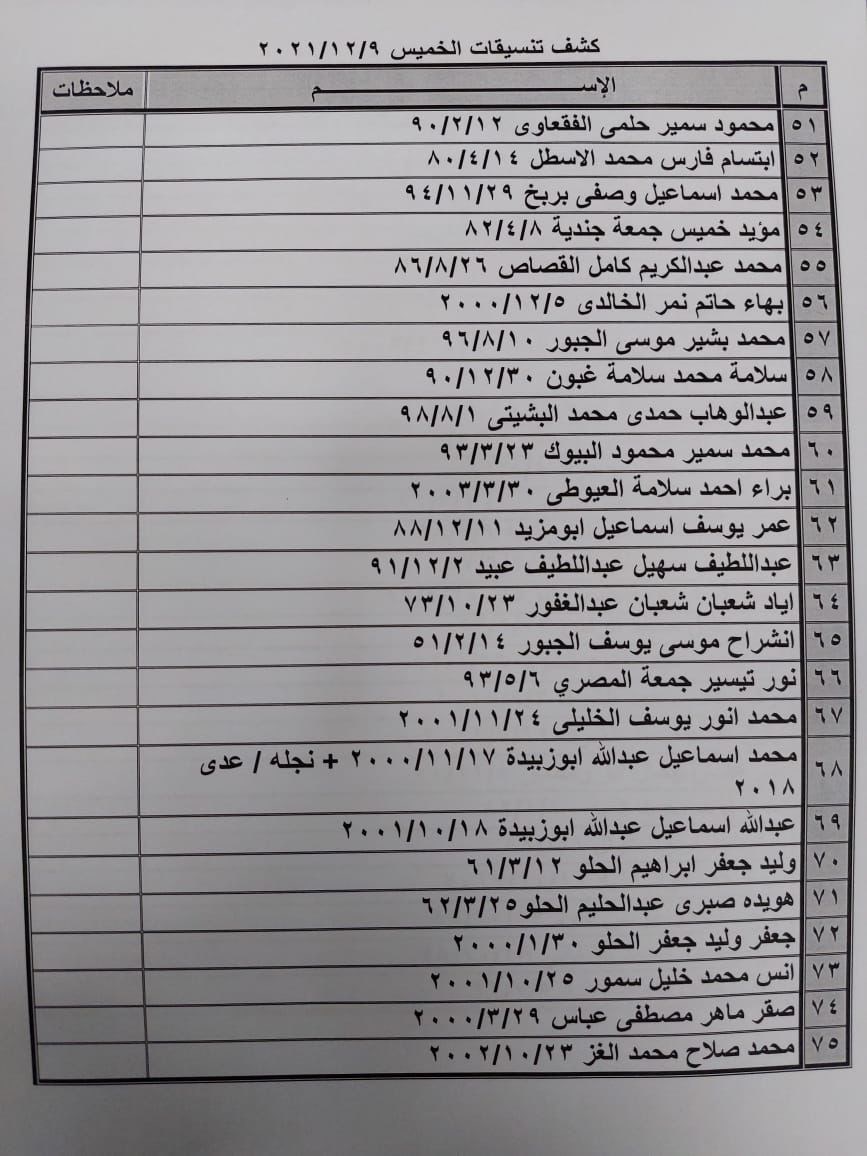 كشف تنسيقات الخميس ٢٠٢١/١٢/٩
م الإســــــــــــم ملاحظات
٥١ محمود سمير حلمى الفقعاوى ٩٠/٢/١٢
٥٢ ابتسام فارس محمد الاسطل ٨٠/٤/١٤
٥٣ محمد اسماعيل وصفى بربخ ٩٤/١١/٢٩
٥٤ مؤيد خميس جمعة جندية ٨٢/٤/٨
٥٥ محمد عبدالكريم كامل القصاص ٨٦/٨/٢٦
٥٦ بهاء حاتم نمر الخالدى ٢٠٠٠/١٢/٥
٥٧ محمد بشير موسى الجبور ٩٦/٨/١٠
٥٨ سلامة محمد سلامة غبون ٩٠/١٢/٣٠
٥٩ عبدالوهاب حمدى محمد البشيتى ٩٨/٨/١
٦٠ محمد سمير محمود البيوك ٩٣/٣/٢٣
٦١ براء احمد سلامة العيوطى ٢٠٠٣/٣/٣٠
٦٢ عمر يوسف اسماعيل ابومزيد ٨٨/١٢/١١
٦٣ عبداللطيف سهيل عبداللطيف عبيد ٩١/١٢/٢
٦٤ اياد شعبان شعبان عبدالغفور ٧٣/١٠/٢٣
٦٥ انشراح موسى يوسف الجبور ٥١/٢/١٤
٦٦ نور تيسير جمعة المصري ٩٣/٥/٦
٦٧ محمد انور يوسف الخليلى ٢٠٠١/١١/٢٤
٦٨ محمد اسماعيل عبدالله ابوزبيدة ٢٠٠٠/١١/١٧ + نجله / عدى
٢٠١٨
٦٩ عبدالله اسماعيل عبدالله ابوزبيدة ٢٠٠١/١٠/١٨
٧٠ وليد جعفر ابراهيم الحلو ٦١/٣/١٢
٧١ هويده صبرى عبدالحليم الحلو٦٢/٣/٢٥
٧٢ جعفر وليد جعفر الحلو ٢٠٠٠/١/٣٠
٧٣ انس محمد خليل سمور ٢٠٠١/١٠/٢٥
٧٤ صقر ماهر مصطفى عباس ٢٠٠٠/٣/٢٩
٧٥ محمد صلاح محمد الغز ٢٠٠٢/١٠/٢٣